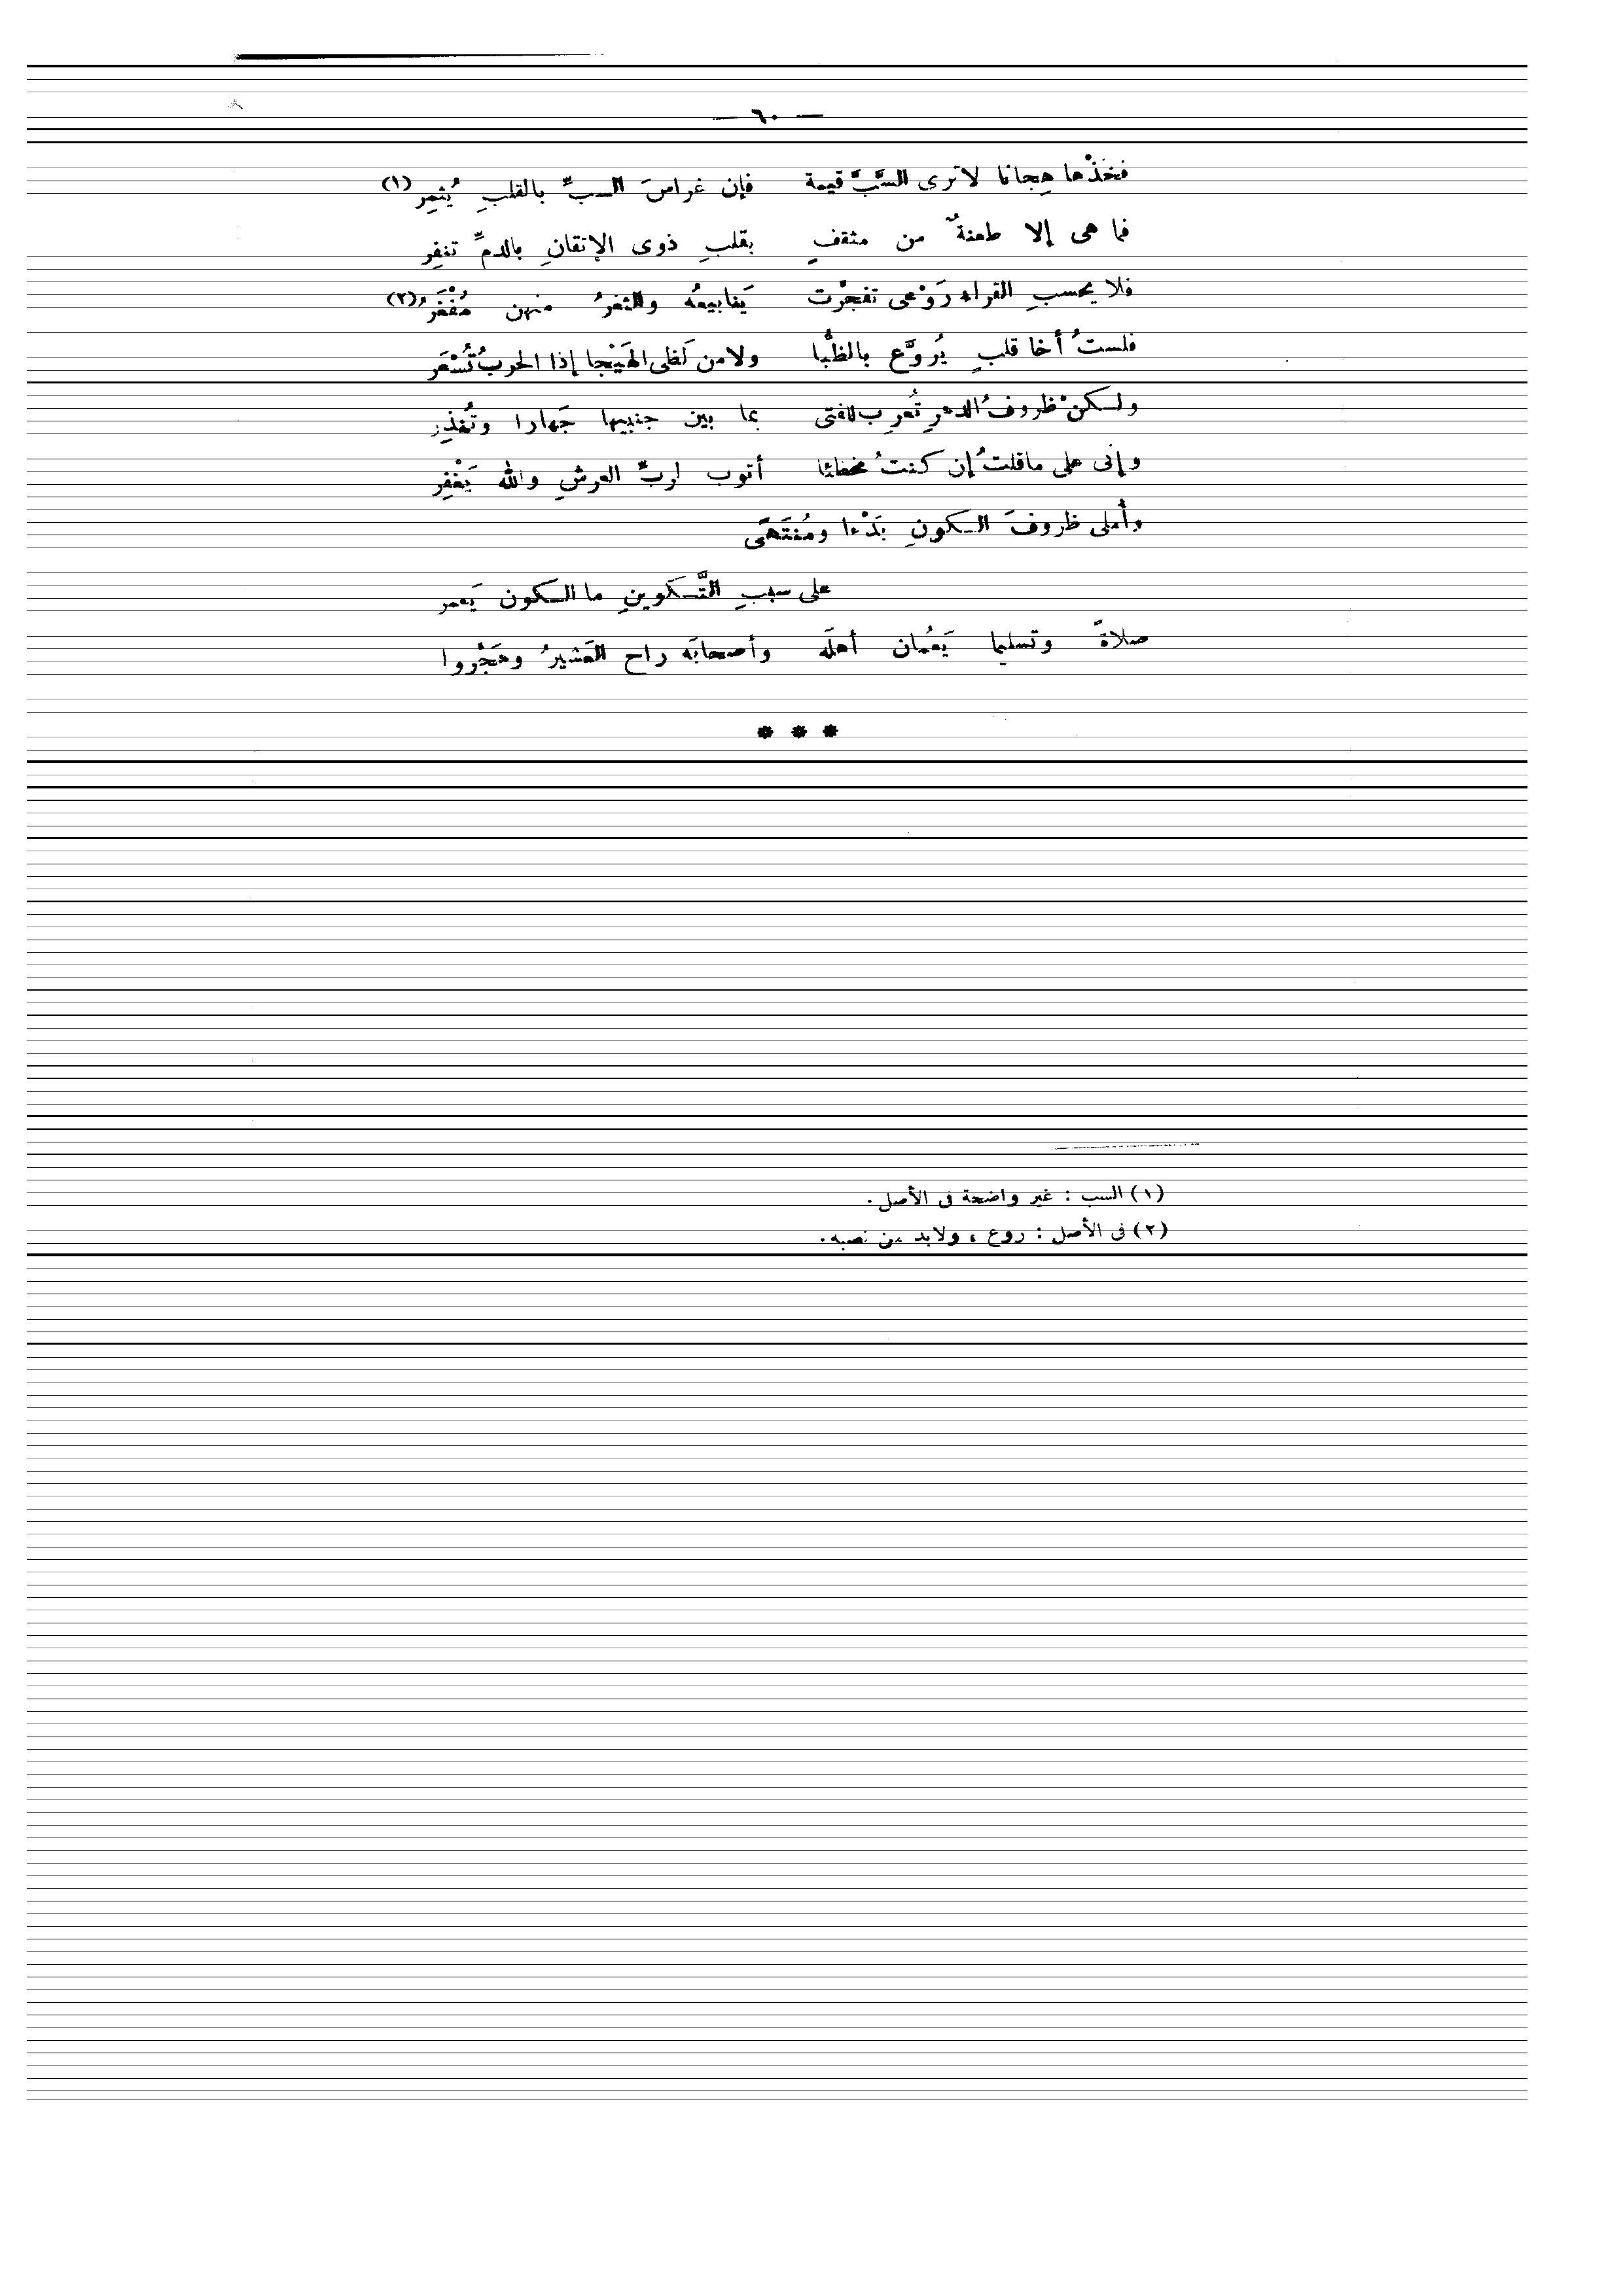 — ٦٠ —
فخذْها هِجانا لا ترى السَّبَّ قيمة فإن غراسَ السبِّ بالقلبِ يُثمِر (١)
فما هى إلا طعنةٌ من مثقفٍ بقلبِ ذوى الإتقانِ بالدمِّ تنفِر
فلا يحسبِ القراء رَوْعى تفجَّرت يَنابيعهُ والثغرُ منهن مُفْغَرُ (٢)
فلستُ أخا قلبٍ يُروَّع بالظُّبا ولا من لَظى الهَيْجا إذا الحربُ تُسْعَر
ولكنْ ظروفُ الدهرِ تُعرِب للفتى بما بين جنبيها جَهارا وتُنذِر
وإنى على ما قلتُ إن كنتُ مخطئا أتوب لربِّ العرشِ والله يَغْفِر
وأملى ظروفَ الكونِ بَدْءا ومُنتَهًى
على سببِ التَّكوينِ ما الكون يَعمر
صلاةً وتسليما يَعُمان أهلَه وأصحابَه راح العَشيرُ وهَجَّروا
* * *
(١) السب : غير واضحة فى الأصل.
(٢) فى الأصل : روع ، ولابد من نصبه.